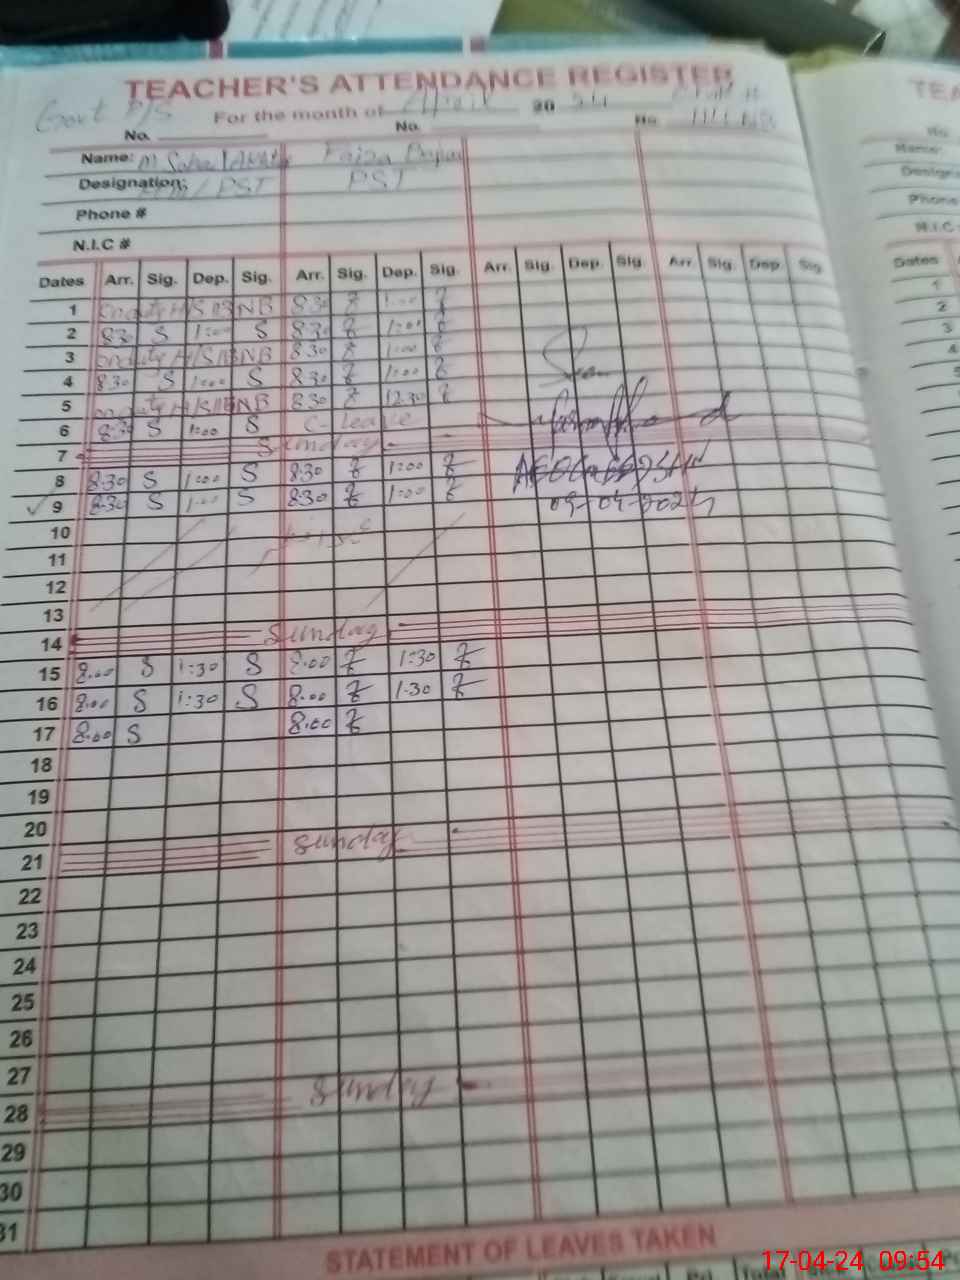 TEACHER'S ATTENDANCE REGISTER TEA
Govt P/S For the month of April 20 24
No. No. No. No.
Name: M Faiza Name:
Designation: PST PST Design
Phone # Phone
N.I.C # N.I.C
Dates Arr. Sig. Dep. Sig. Arr. Sig. Dep. Sig. Arr. Sig. Dep. Sig. Arr. Sig. Dep. Sig. Dates
1 on duty H/S 113NB 8:30 1:00 1
2 8:30 S 1:00 S 8:30 1:00 2
3 onduty H/S 113NB 8:30 1:00 3
4 8:30 S 1:00 S 8:30 1:00 4
5 onduty H/S 113NB 8:30 12:30 5
6 8:30 S 1:00 S C-leave
7 Sunday
8 8:30 S 1:00 S 8:30 1:00
9 8:30 S 1:00 S 8:30 1:00 09-04-2024
10
11
12
13
14 Sunday
15 8.00 S 1:30 S 8.00 1:30
16 8.00 S 1:30 S 8.00 1.30
17 8.00 S 8.00
18
19
20
21 Sunday
22
23
24
25
26
27
28 Sunday
29
30
31
STATEMENT OF LEAVES TAKEN
17-04-24 09:54
Total